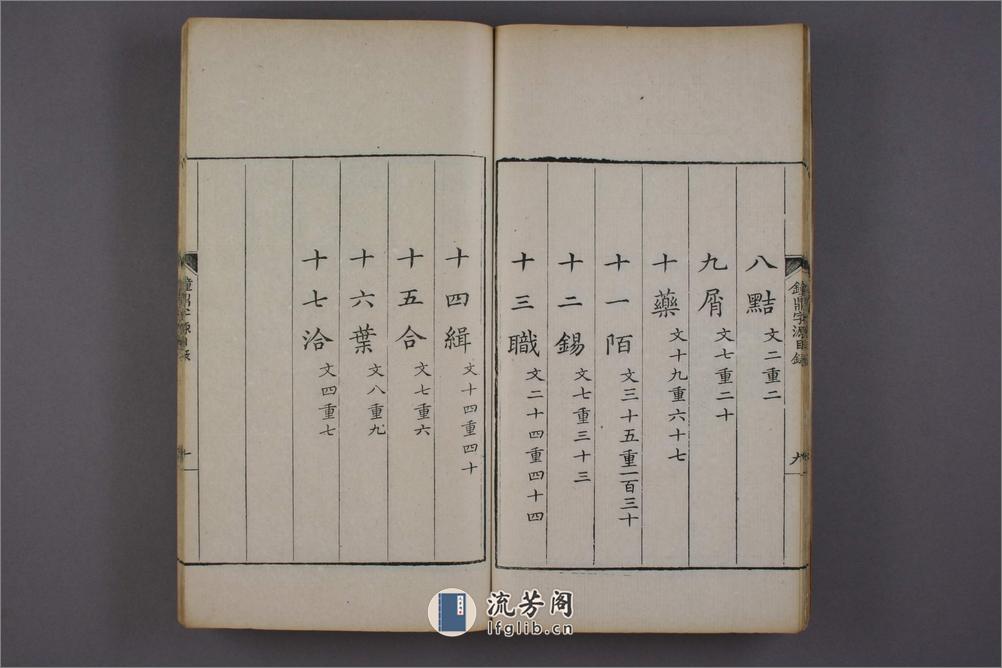 八黠 文二重二
九屑 文七重二十
十藥 文十九重六十七
十一陌 文三十五重一百三十
十二錫 文七重三十三
十三職 文二十四重四十四
十四緝 文十四重四十
十五合 文七重六
十六葉 文八重九
十七洽 文四重七
鐘鼎字源目錄
鐘鼎字源目錄
流芳阁
lfglib.cn